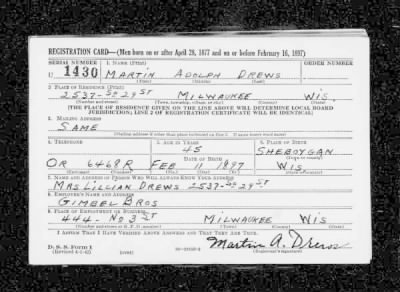 REGISTRATION CARD—(Men born on or after April 28, 1877 and on or before February 16, 1897)
SERIAL NUMBER 1. NAME (Print) ORDER NUMBER
U 1430 MARTIN ADOLPH DREWS
(First) (Middle) (Last)
2. PLACE OF RESIDENCE (Print)
2537-SO 29 ST MILWAUKEE WIS
(Number and street) (Town, township, village, or city) (County) (State)
[THE PLACE OF RESIDENCE GIVEN ON THE LINE ABOVE WILL DETERMINE LOCAL BOARD
JURISDICTION; LINE 2 OF REGISTRATION CERTIFICATE WILL BE IDENTICAL]
3. MAILING ADDRESS
SAME
(Mailing address if other than place indicated on line 2. If same insert word same)
4. TELEPHONE 5. AGE IN YEARS 6. PLACE OF BIRTH
45 SHEBOYGAN
DATE OF BIRTH (Town or county)
OR 6468R FEB 11 1897 WIS
(Exchange) (Number) (Mo.) (Day) (Yr.) (State or country)
7. NAME AND ADDRESS OF PERSON WHO WILL ALWAYS KNOW YOUR ADDRESS
MRS LILLIAN DREWS 2537-SO 29 ST
8. EMPLOYER'S NAME AND ADDRESS
GIMBEL BROS
9. PLACE OF EMPLOYMENT OR BUSINESS
444- NO 3 ST MILWAUKEE WIS
(Number and street or R. F. D. number) (Town) (County) (State)
I AFFIRM THAT I HAVE VERIFIED ABOVE ANSWERS AND THAT THEY ARE TRUE.
D. S. S. Form 1
(Revised 4-1-42) (over) Martin A. Drews
(Registrant's signature)